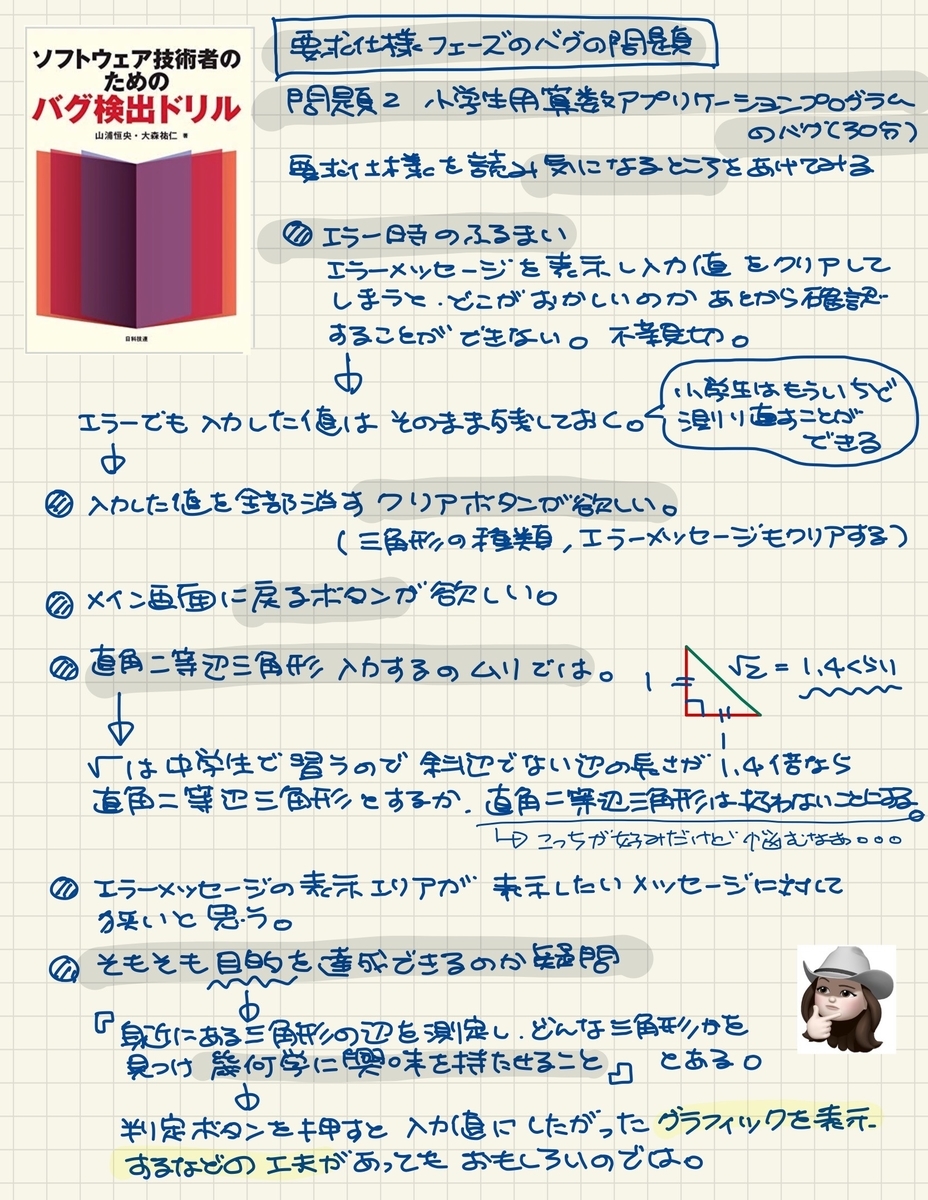 ソフトウェア技術者の
ための
バグ検出ドリル
山浦恒央・大森祐仁 著
日科技連
要求仕様フェーズのバグの問題
問題2 小学生用算数アプリケーションプログラム
のバグ(30分)
要求仕様を読み気になるところをあげてみる
エラー時のふるまい
エラーメッセージを表示し入力値をクリアして
しまうと、どこがおかしいのかあとから確認
することができない。不親切。
エラーでも入力した値はそのまま残しておく。
小学生はもういちど
測り直すことが
できる
入力した値を全部消すクリアボタンが欲しい。
(三角形の種類,エラーメッセージもクリアする)
メイン画面に戻るボタンが欲しい。
直角二等辺三角形入力するのムリでは。
1
√2 = 1.4くらい
1
√は中学生で習うので斜辺でない辺の長さが1.4倍なら
直角二等辺三角形とするか、直角二等辺三角形は扱わないことにする。
こっちが好みだけど悩むなぁ。。。
エラーメッセージの表示エリアが表示したいメッセージに対して
狭いと思う。
そもそも目的を達成できるのか疑問
『身近にある三角形の辺を測定し、どんな三角形かを
見つけ幾何学に興味を持たせること』とある。
判定ボタンを押すと入力値にしたがったグラフィックを表示
するなどの工夫があってもおもしろいのでは。